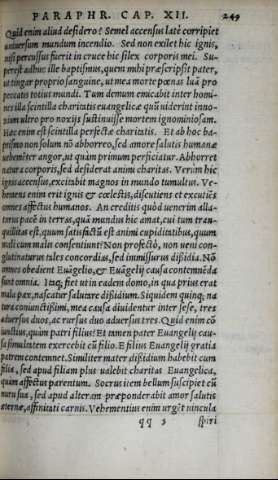 PARAPHR. CAP. XII. 249
Quid enim aliud desidero? Semel accensus latè corripiet
uniuersum mundum incendio. Sed non exilet hic ignis,
nisi percussus fuerit in cruce hic silex corporis mei. Su-
perest adhuc ille baptismus, quem mihi præscripsit pater,
ut tingar proprio sanguine, ut mea morte pœnas luã pro
peccatis totius mundi. Tum demum emicabit inter homi-
nes illa scintilla charitatis euangelicæ quũ uiderint inno-
xium ultro pro noxijs sustinuisse mortem ignominiosam.
Hæc enim est scintilla perfectæ charitatis. Et ab hoc ba-
ptismo non solum nõ abhorreo, sed amore salutis humanæ
uehemẽter angor, ut quàm primum perficiatur. Abhorret
natura corporis, sed desiderat animi charitas. Verùm hic
ignis accensus, excitabit magnos in mundo tumultus. Ve-
hemens enim erit ignis & cœlestis, discutiens et excutiẽs
omneis affectus humanos. An creditis quòd uenerim alla-
turus pacẽ in terras, quã mundus hic amat, cui tum tran-
quillitas est, quum satisfactũ est animi cupiditatibus, quum
mali cum malis consentiunt? Non profectò, non ueni con-
glutinaturus tales concordias, sed immissurus dissidia. Nõ
omnes obedient Euãgelio, & Euãgelij causa contemnẽda
sunt omnia. Itaq; fiet ut in eadem domo, in qua prius erat
mala pax, nascatur salutare dissidium. Siquidem quinq; na
tura coniunctissimi, mea causa diuidentur inter sese, tres
aduersus duos, ac rursus duo aduersus tres. Quid enim cõ
iunctius, quàm patri filius? Et tamen pater Euangelij cau-
sa simultatem exercebit cũ filio. E filius Euangelij gratia
patrem contemnet. Similiter mater dissidium habebit cum
filia, sed apud filiam plus ualebit charitas Euangelica,
quàm affectus parentum. Socrus item bellum suscipiet cũ
nuru sua, sed apud alteram præponderabit amor salutis
æternæ, affinitati carnis. Vehementius enim urgẽt uincula
qq 3 spiri